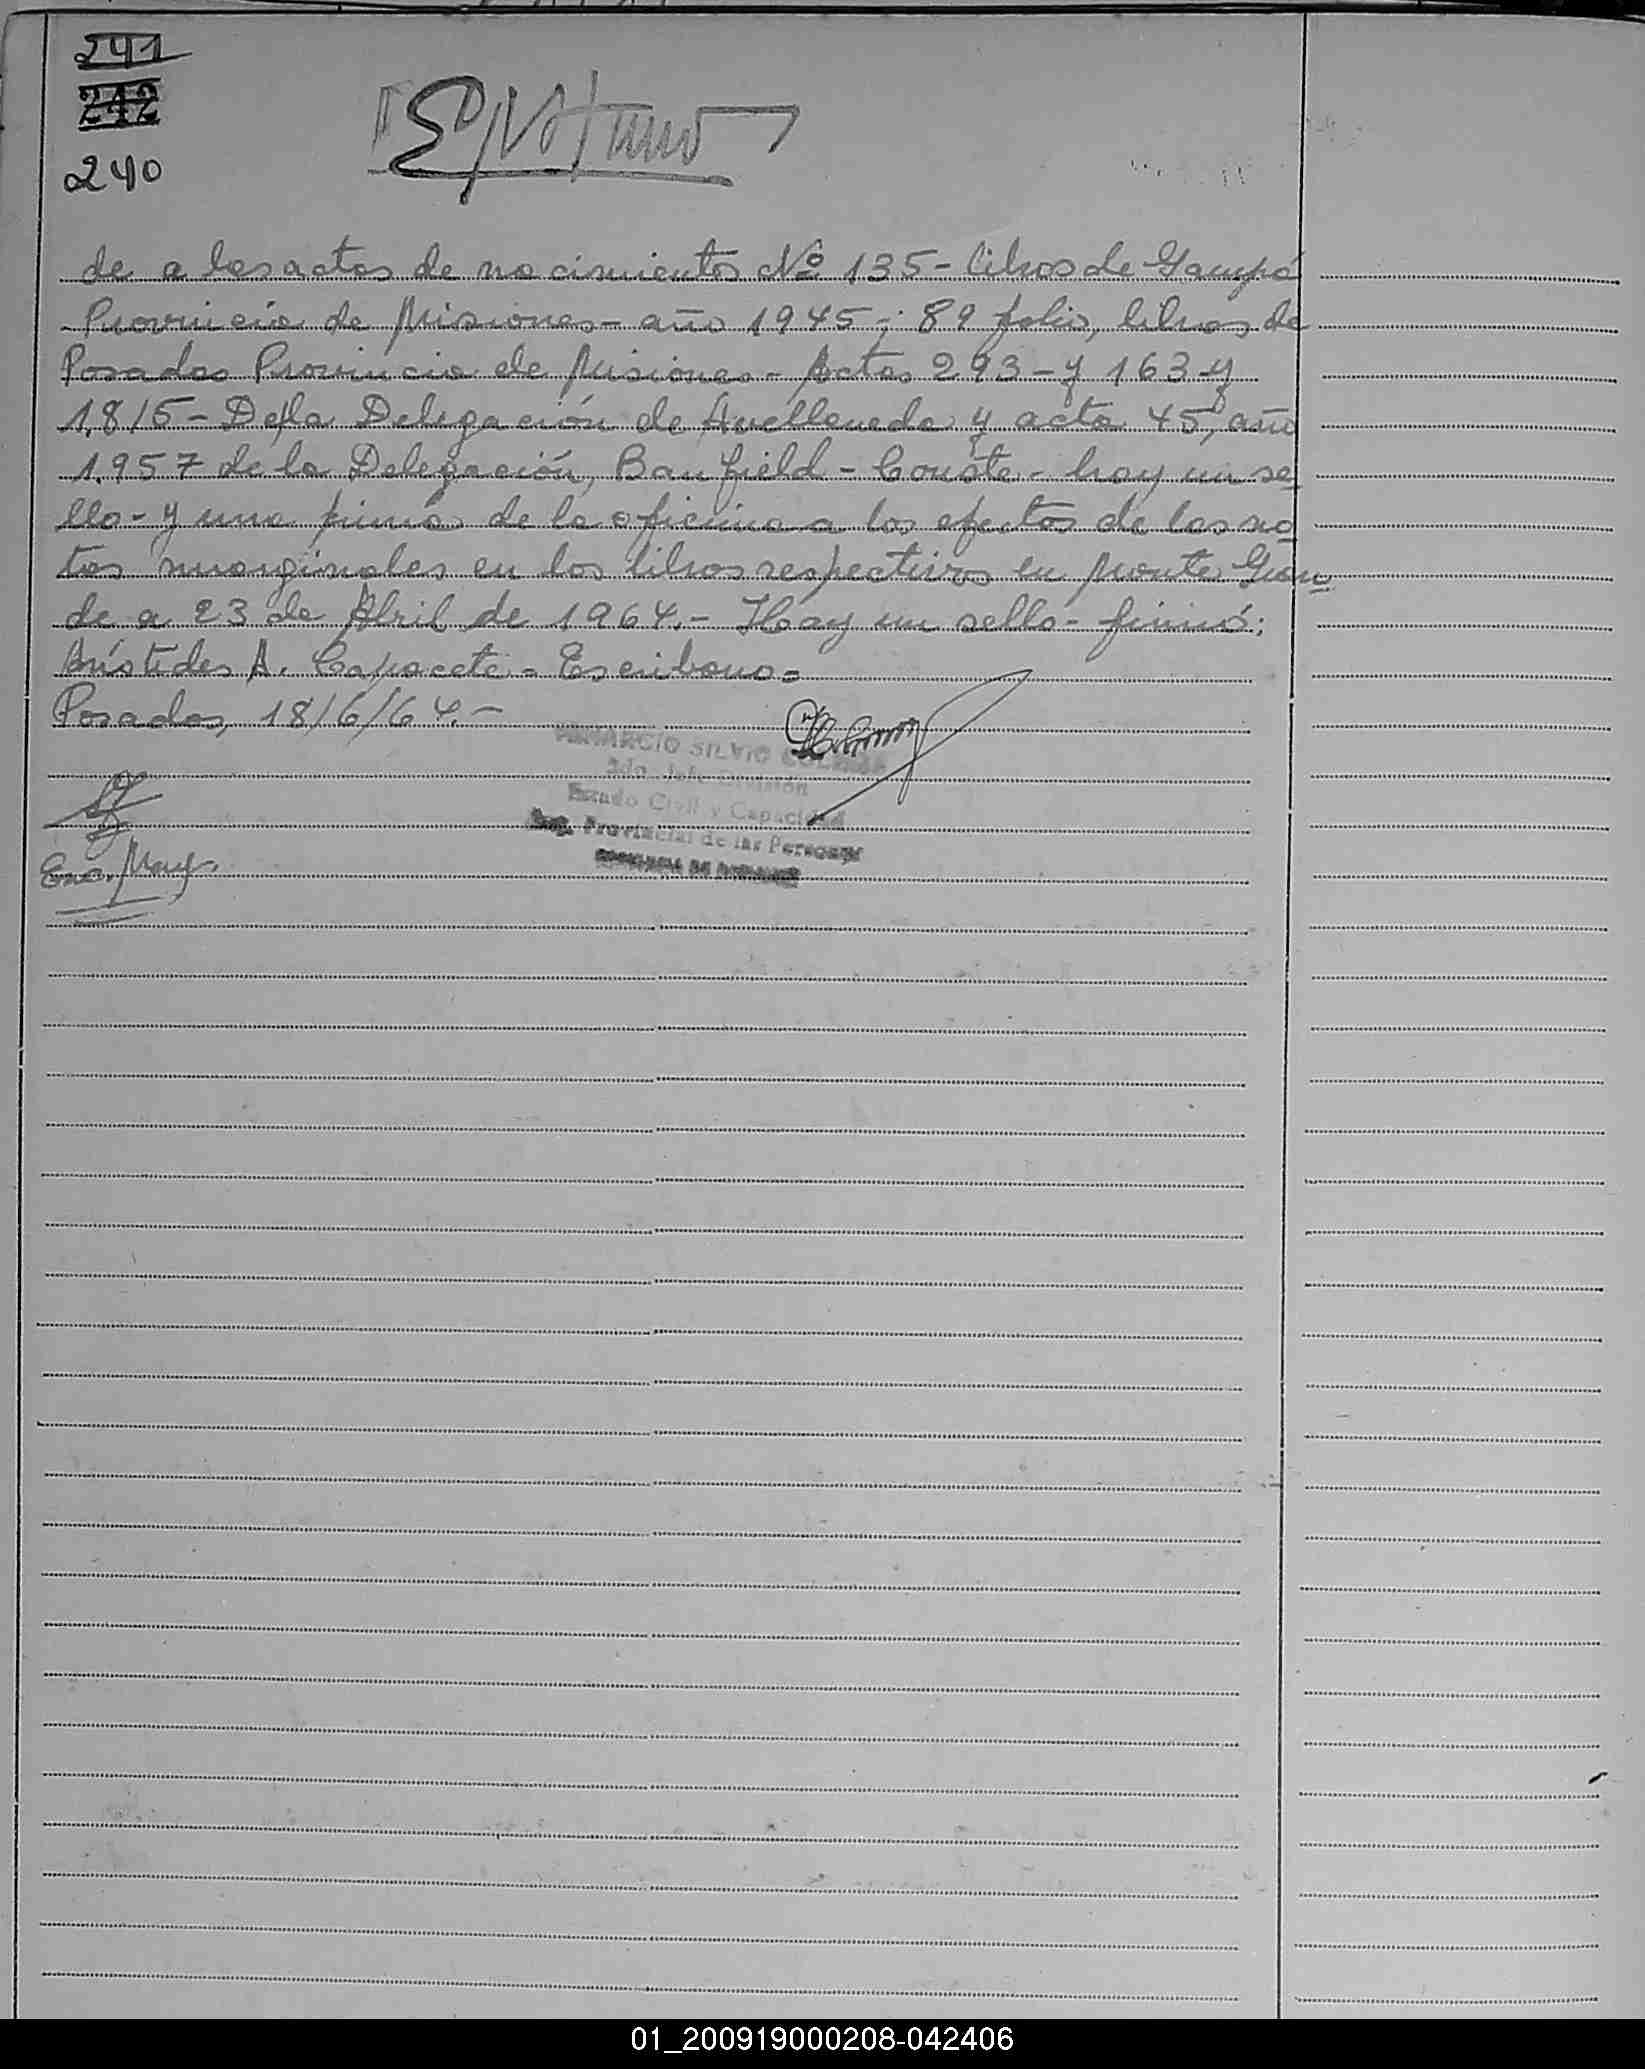 241
242
240
de a las actas de nacimientos Nº 135 - libros de Garupá
Provincia de Misiones - año 1945 -; 89 folio, libros de
Posadas Provincia de Misiones - Actas 293 - y 163 y
1.815 - De la Delegación de Avellaneda y acta 45, año
1.957 de la Delegación, Banfield - Conste - hay un se
llo - y una firma de la oficina a los efectos de las no
tas marginales en los libros respectivos en Monte Gran
de a 23 de Abril de 1964. - Hay un sello - firmó:
Arístides A. Capacete - Escribano =
Posadas, 18/6/64. -
SILVIO
2do. Jefe División
Estado Civil y Capacidad
Reg. Provincial de las Personas
Enc. Mayr.
01_200919000208-042406